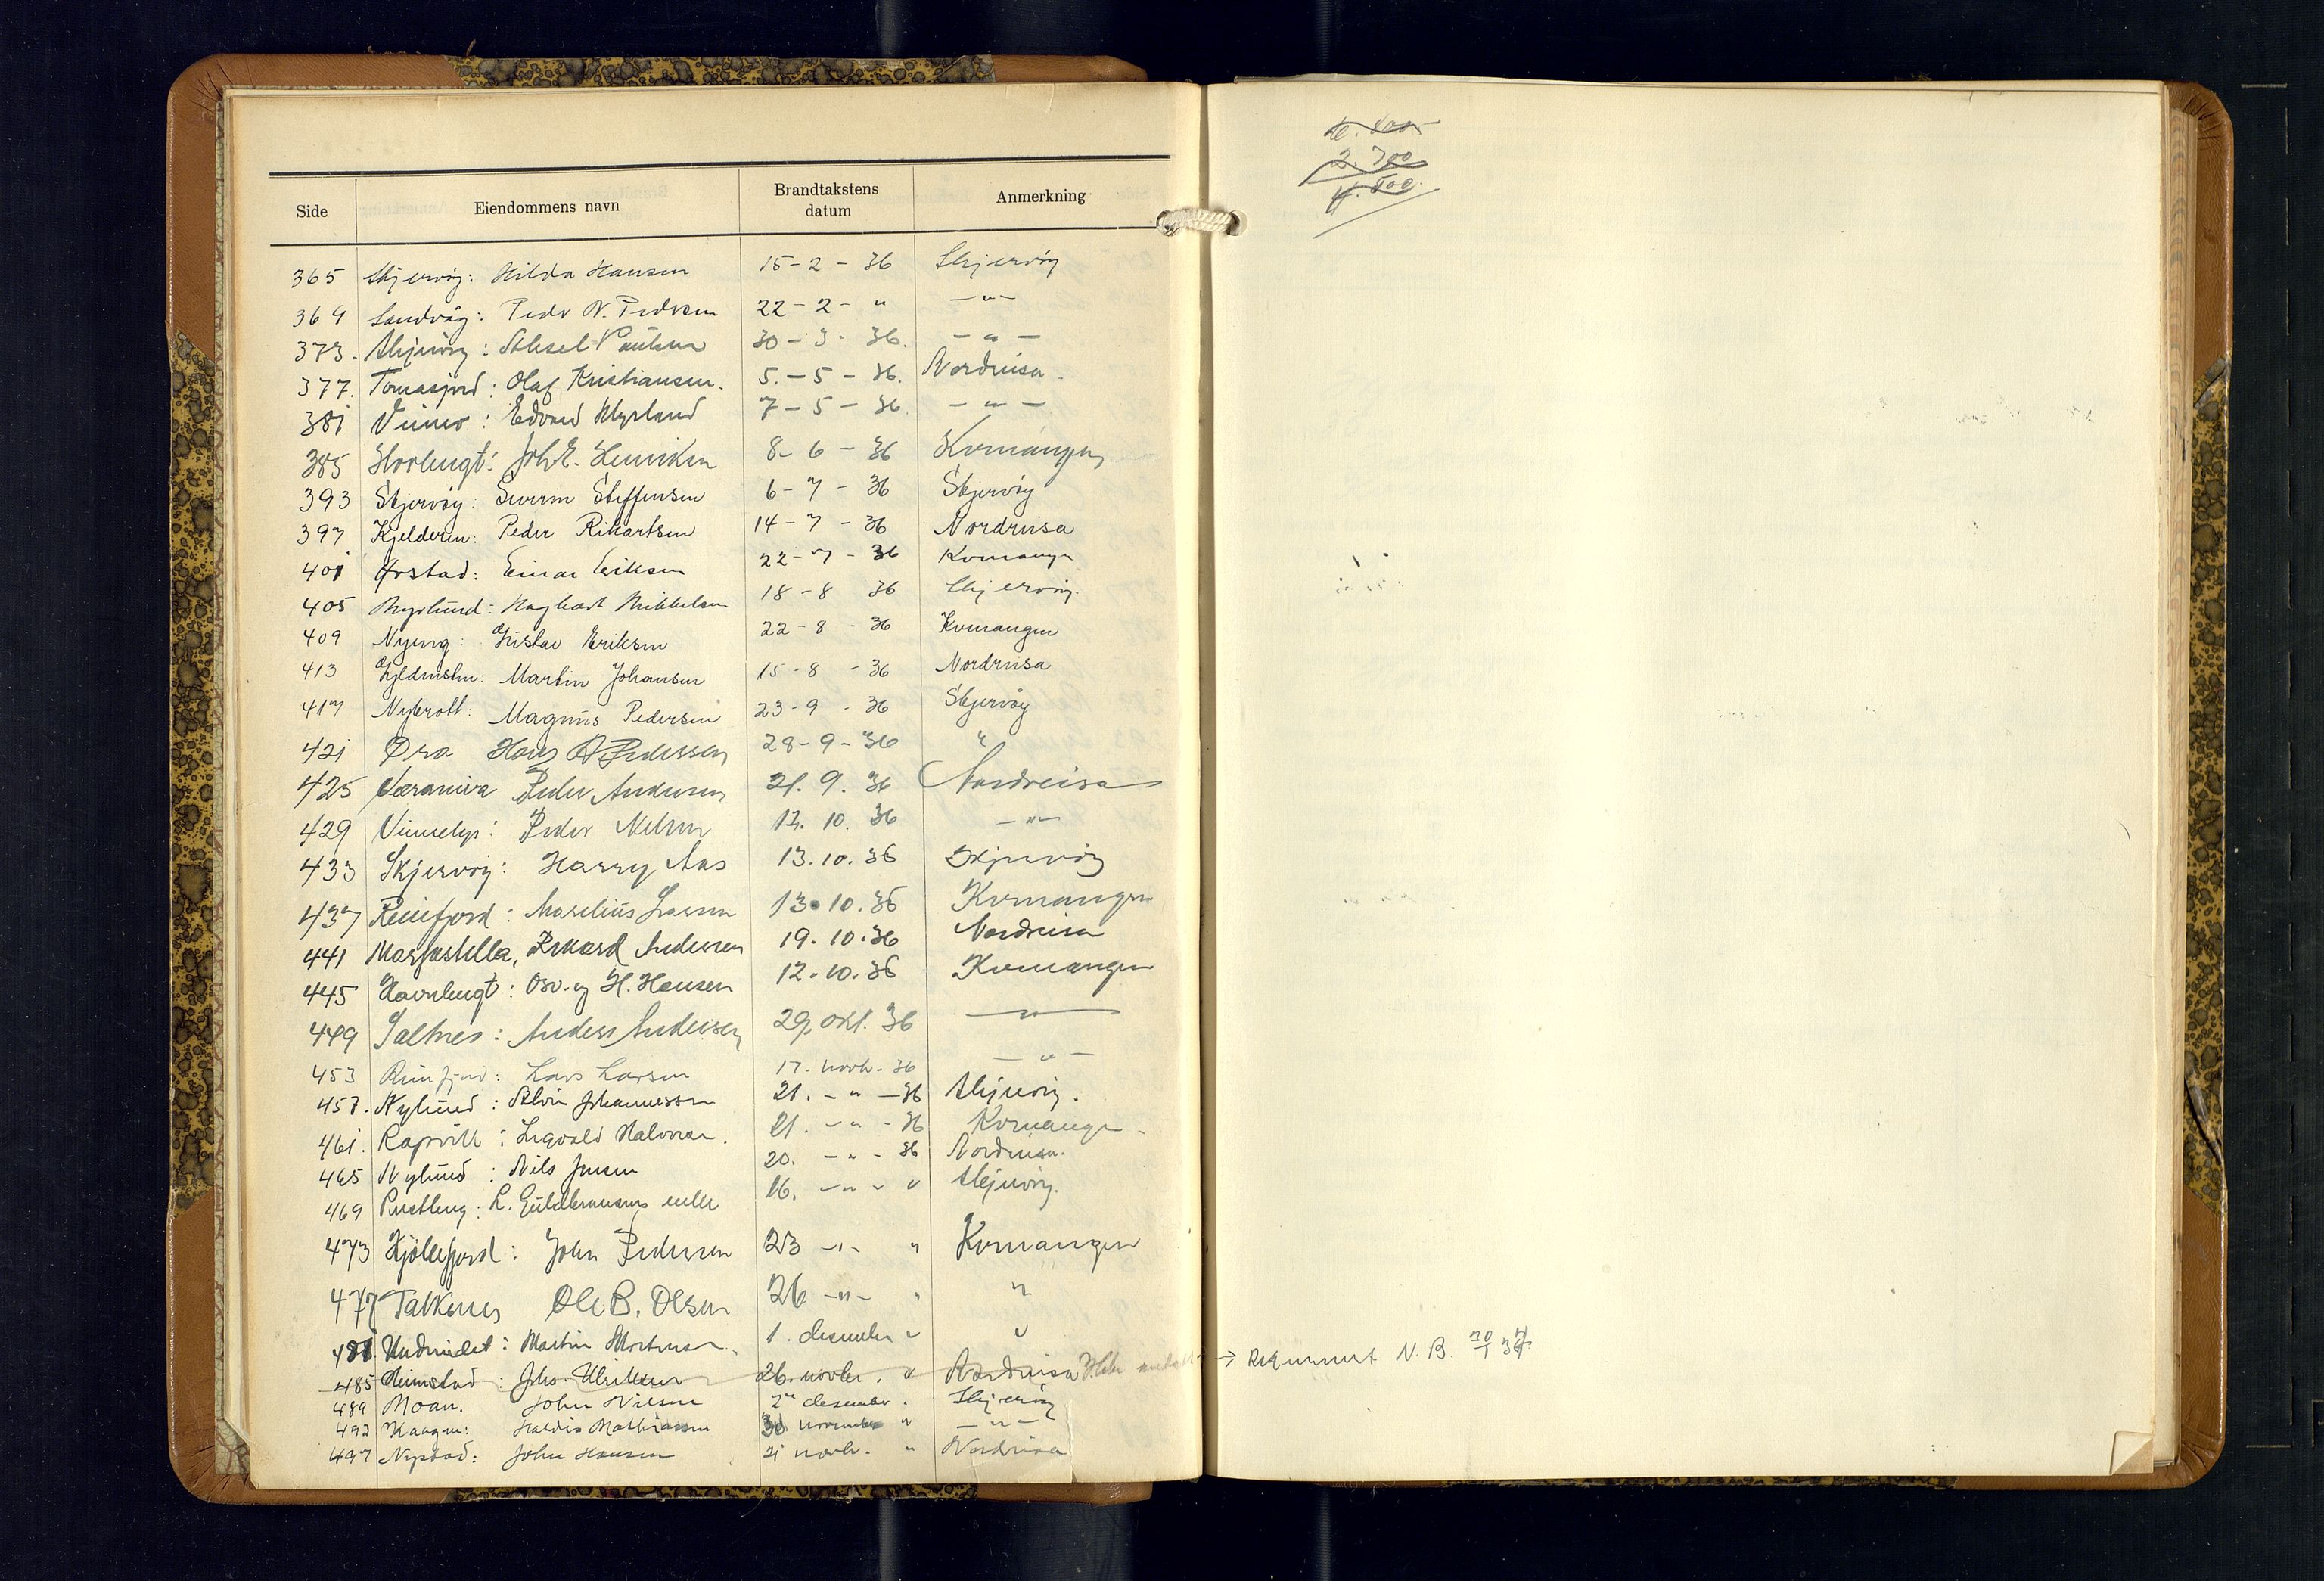 Side Eiendommens navn Brandtakstens datum Anmerkning
365 Skjervøy: Hilda Hansen 15-2-36 Skjervöy
369 Sandvåg: Peder N. Pedersen 22-2- " -"-
373. Skjervöy: Aksel Paulsen 30-3-36. -"-
377. Tomasjord: Olaf Kristiansen. 5.-5-36. Nordreisa
381 Vinnes: Edvard Myrland 7-5-36. -"-
385 Storbugt: Joh E. Henriksen 8-6-36 Kvænangen
393 Skjervöy: Steffensen 6-7-36 Skjervöy
397 Kjelderen: Peder Rikartsen 14-7-36 Nordreisa
401 Ørstad: Einar Eriksen 22-7-36 Kvænangen
405 Myrlund: Hagbart Mikkelsen 18-8 36 Skjervöy.
409 Nyeng: Gustav Eriksen 22-8-36 Kvænangen
413 Martin Johansen 15-8-36 Nordreisa
417 Nybrott: Magnus Pedersen 23-9-36 Skjervöy
421 Øra Hans A Pedersen 28-9-36 "
425 Peder Andersen 21.9.36 Nordreisa
429 Peder Nelsen 12.10.36 -"-
433 Skjervöy: Harry Aas 13.10.36 Skjervöy
437 Reinfjord: Marelius Larsen 13.10.36 Kvænangen
441 Rikard Andersen 19.10.36 Nordreisa
445 Havnbugt: Osv. og H. Hansen 12.10.36 Kvænangen
449 Saltnes: Anders Andersen 29. okt. 36 -"-
453 Reinfjord: Lars Larsen 17. novb. 36 -"-
457. Nylund: Alvin Johannessen 21. -"- 36 Skjervöy.
461. Rapvik: Sigvald Halvorsen. 21. -"- 36 Kvænangen
465 Nylund: Nils Jensen 20. -"- 36 Nordreisa.
469 L. Guldbransens enke 16. -"- " Skjervöy.
473 Kjöllefjord: John Pedersen 23 -"- " Kvænangen
477 Talknes Ole B. Olsen 26 -"- " "
481. Martin Mortensen. 1. desember " "
485 Heimstad: Johs. Ulriksen 26. novbr. " Nordreisa → Rekvirert N. B. 20/1 37
489 Moan. John Nilsen 2 desember. Skjervöy
493 Kaagen: Haldis Mathiassen 30 november " -"-
497 Nystad: John Hansen 21 novb. " Nordreisa
2.300